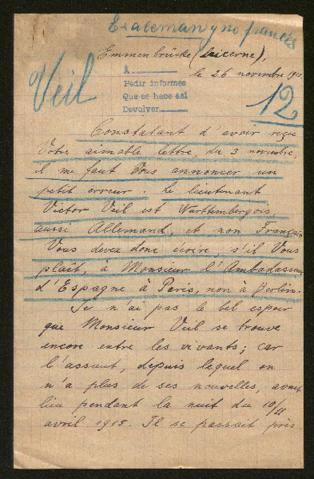 Es aleman y no francés
Emmenbrücke (Lucerne),
le 26 novembre 191
Veil
A
Pedir informes
Que se hace así
Devolver
12
Constatant d'avoir reçu
Votre aimable lettre du 3 novembre,
il me faut Vous annoncer un
petit erreur. Le lieutenant
Victor Veil est Wurttembergois
aussi Allemand, et non Français
Vous devez donc écrire s'il Vous
plaît, à Monsieur l'Ambadasseur
d'Espagne à Paris, non à Berlin.
Je n'ai pas le bel espoir
que Monsieur Veil se trouve
encore entre les vivants; car
l'assaut, depuis lequel on
n'a plus de ses nouvelles, avait
lieu pendant la nuit du 10/11
avril 1915. Il se passait près